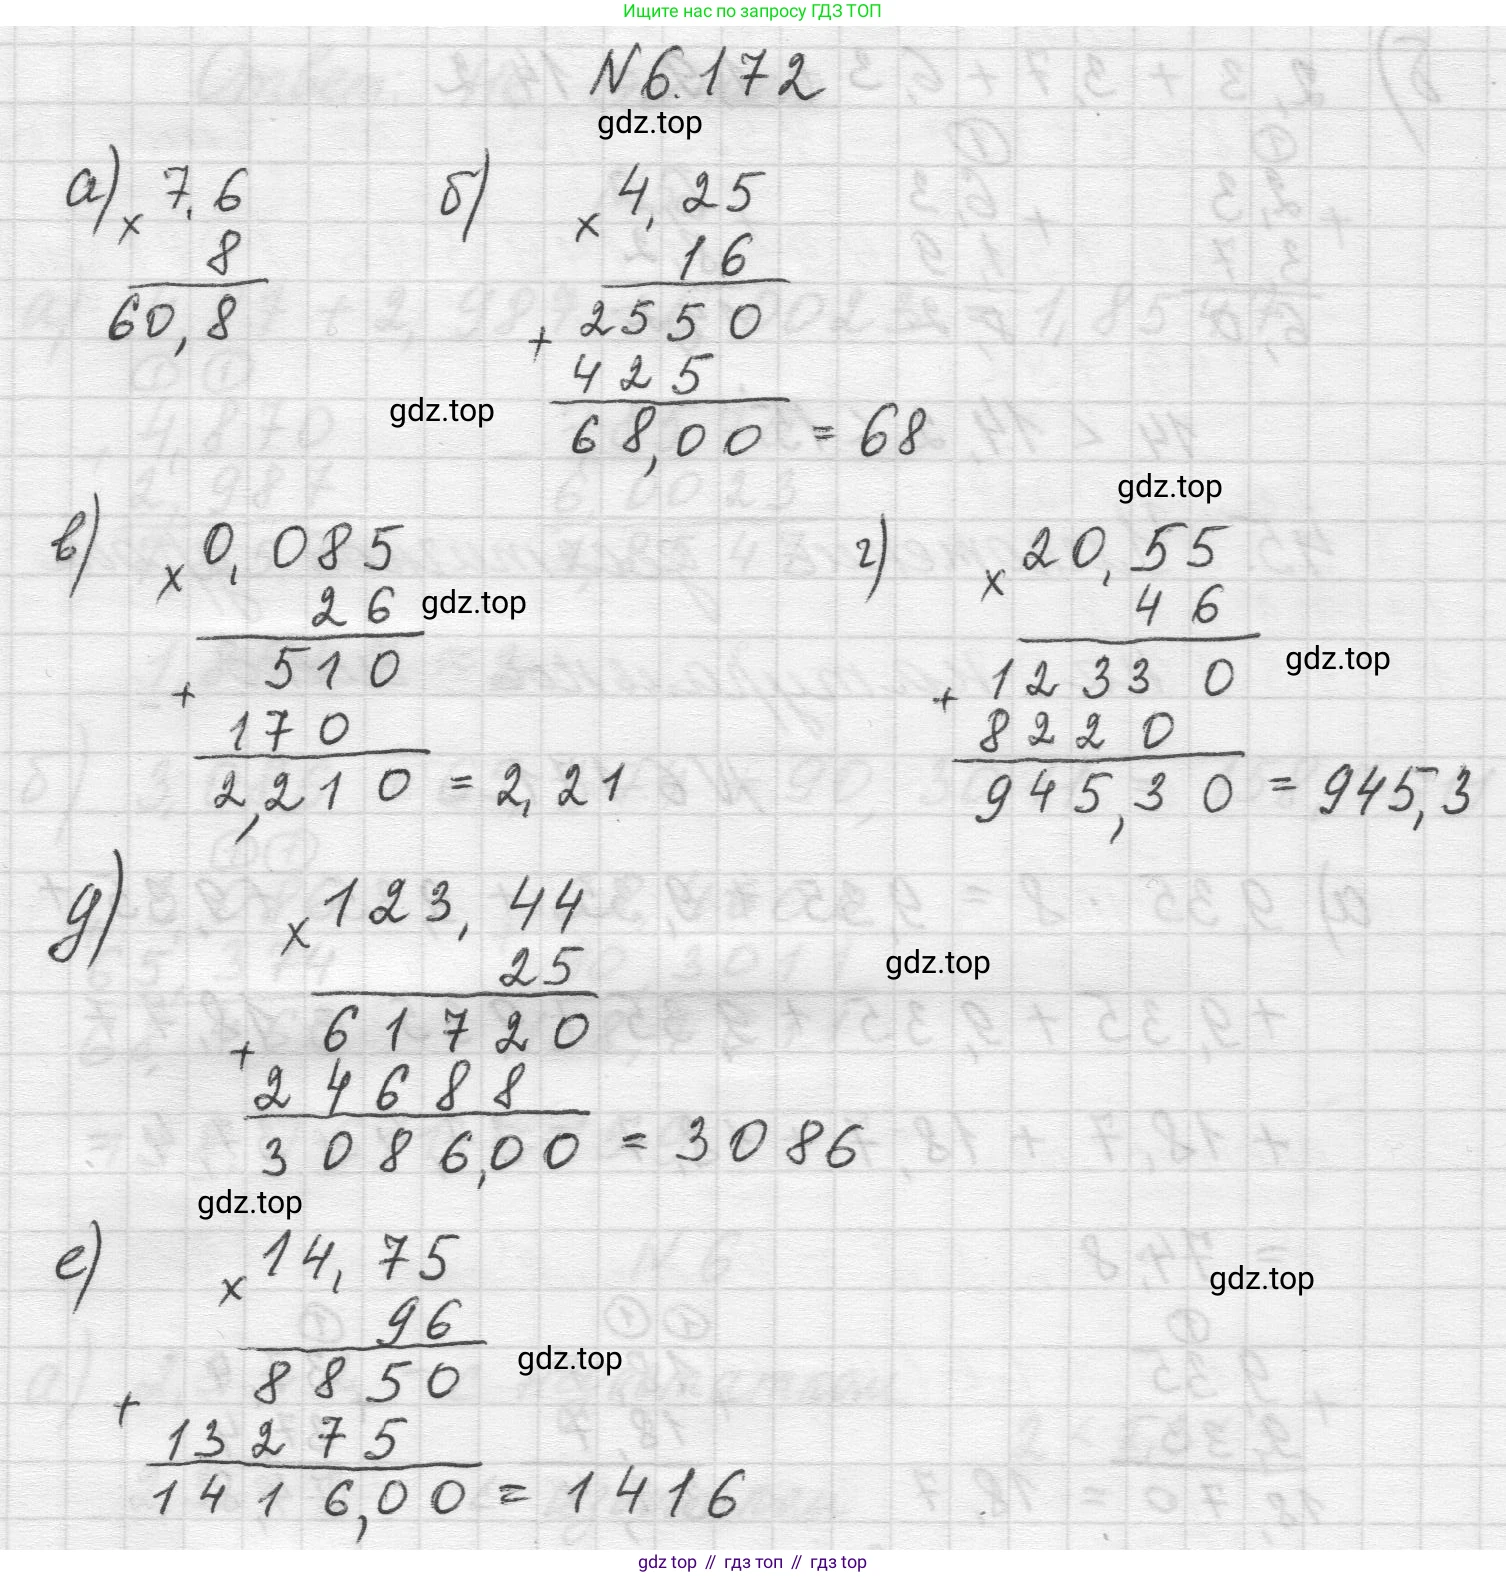 Ищите нас по запросу ГДЗ ТОП
N 6.172
gdz.top
а) × 7,6
8
60,8
б) × 4,25
16
+ 2550
425
68,00 = 68
gdz.top
gdz.top
в) × 0,085
26
gdz.top
+ 510
170
2,210 = 2,21
г) × 20,55
46
gdz.top
+ 12330
8220
945,30 = 945,3
д) × 123,44
25
gdz.top
+ 61720
24688
3086,00 = 3086
gdz.top
е) × 14,75
96
gdz.top
gdz.top
+ 8850
13275
1416,00 = 1416
gdz top // гдз топ // гдз top